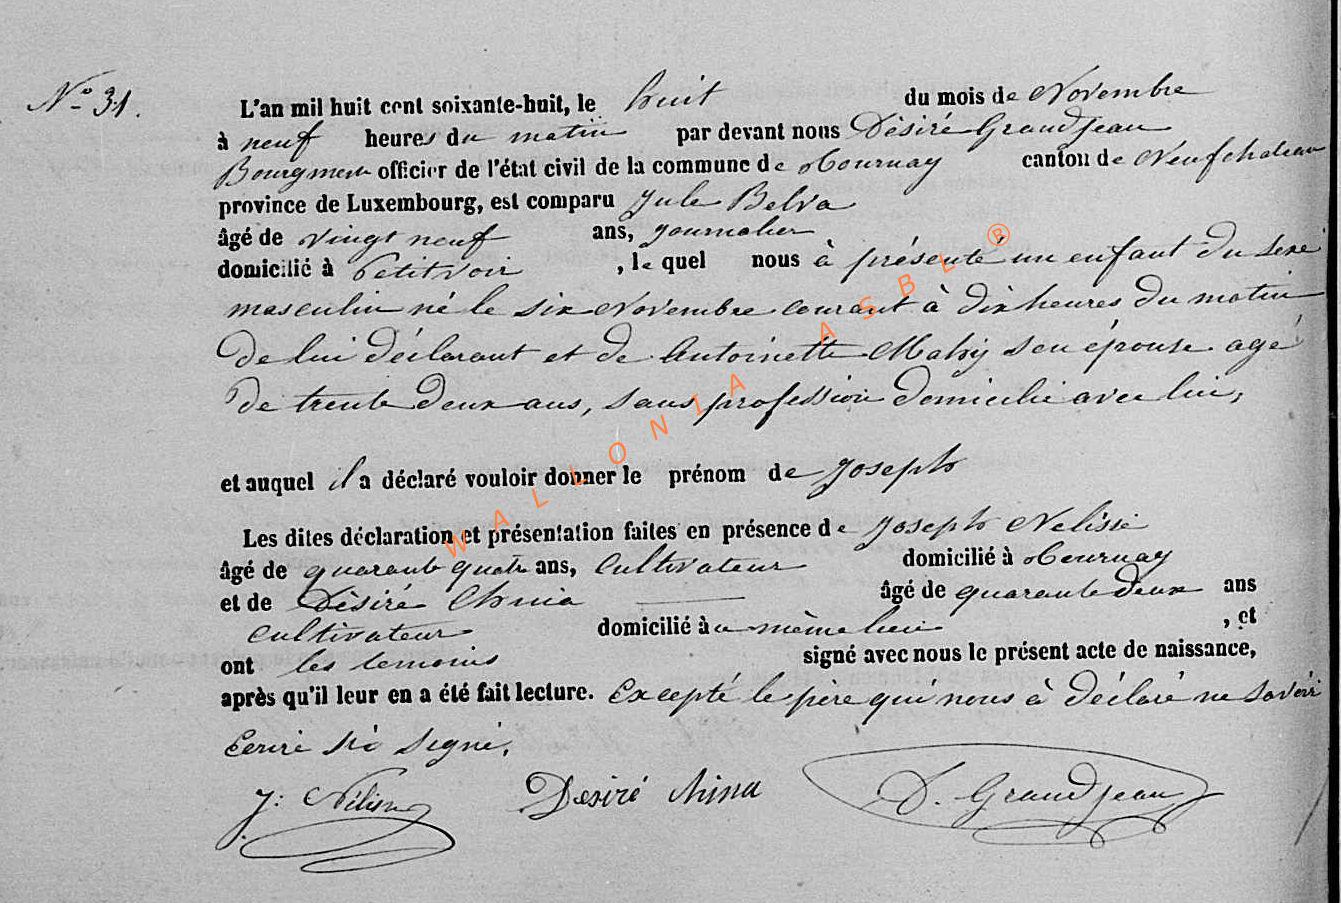 N° 31. L'an mil huit cent soixante-huit, le huit du mois de Novembre
à neuf heures du matin par devant nous Dèsiré Grandjean
Bourgmest officier de l'état civil de la commune de Tournay canton de Neufchateau
province de Luxembourg, est comparu Jule Belva
âgé de vingt neuf ans, journalier
domicilié à Petitvoir, le quel nous à présenté un enfant du sexe
masculin né le six Novembre courant à dix heures du matin
de lui déclarant et de Antoinette son épouse agé
de trente deux ans, sans profession domicilié avec lui,
et auquel il a déclaré vouloir donner le prénom de Joseph
Les dites déclaration et présentation faites en présence de Joseph Nelisse
âgé de quarante quatre ans, Cultivateur domicilié à Tournay
et de Dèsiré China âgé de quarante deux ans
Cultivateur domicilié à u même lieu, et
ont les temoins signé avec nous le présent acte de naissance,
après qu'il leur en a été fait lecture. Excepté le père qui nous à déclaré ne savoir
Ecrire ni signé.
J: Nelisse Desiré China D. Grandjean
WALLONIA ASBL ®